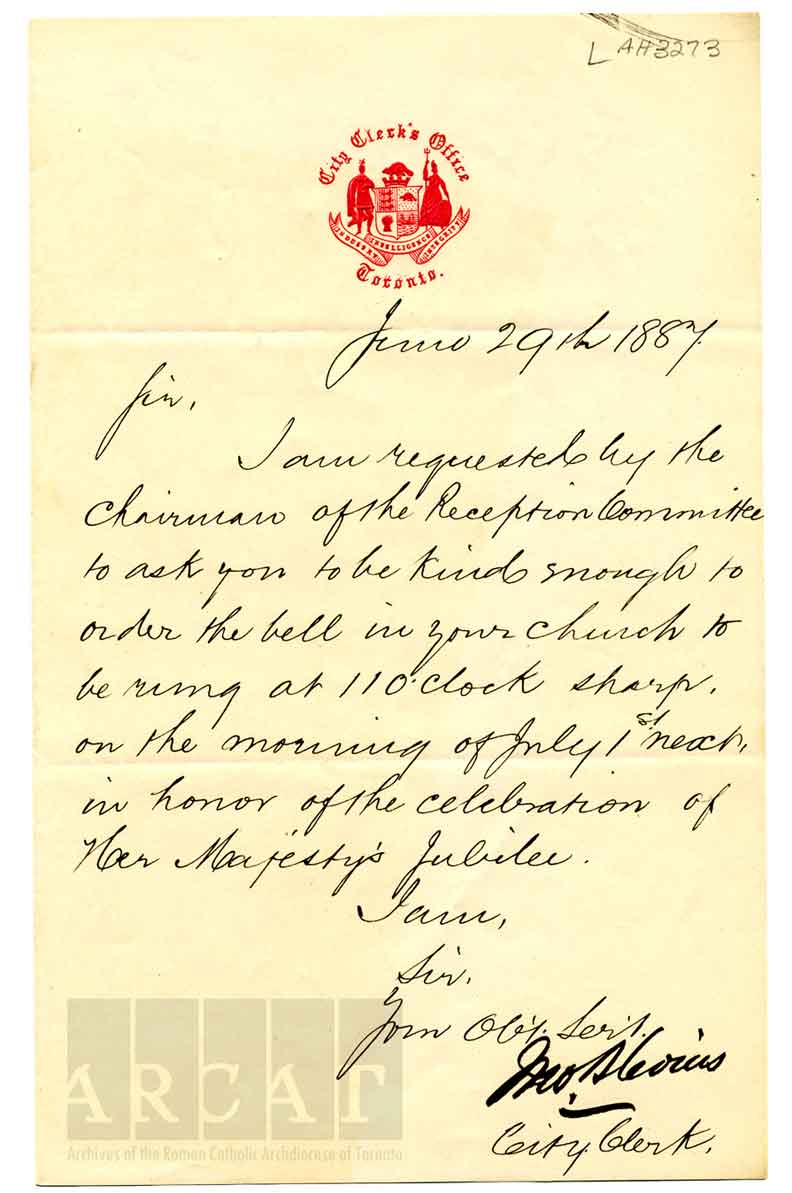 L AH3273
City Clerk's Office
INDUSTRY INTELLIGENCE INTEGRITY
Toronto.
June 29th 1887.
Sir,
I am requested by the
Chairman of the Reception Committee
to ask you to be kind enough to
order the bell in your church to
be rung at 11 O'clock sharp,
on the morning of July 1st next,
in honor of the celebration of
Her Majesty's Jubilee.
I am,
Sir,
Your Obt. Servt.
Jno. Blevins
City Clerk.
ARCAT
Archives of the Roman Catholic Archdiocese of Toronto